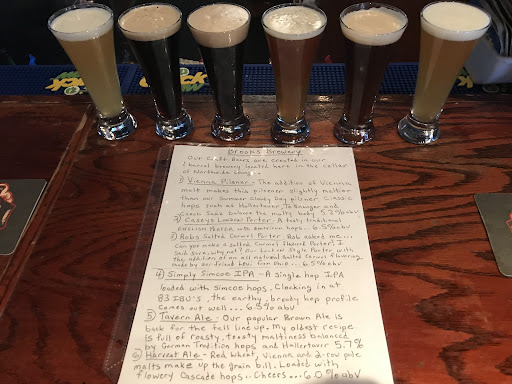 Brooks Brewery
Our Craft Beers are created in our
2 barrel brewery located here in the cellar
of Northside Lounge
1) Vienna Pilsner - The addition of Vienna
malt makes this pilsner slightly maltier
than our Summer Cloudy Day pilsner. Classic
hops such as Hallertauer Tettnanger and
Czech Saaz balance the malty body 5.2% abv
2) Caseys London Porter - A tasty traditional
English Porter with American hops. 6.5% abv
3) Robs Salted Caramel Porter Rob asked me...
Can you make a Salted Caramel flavored Porter? I
said sure, why not? Our London Style Porter with
the addition of an all natural Salted Caramel flavoring
made by our friend 6.5% abv
4) Simply Simcoe IPA - A single hop IPA
loaded with Simcoe hops. Clocking in at
83 IBU's, the earthy, broody hop profile
comes out well... 6.5% abv
5) Tavern Ale - Our popular Brown Ale is
back for the fall line up. My oldest recipe
is full of roasty, toasty maltiness balanced
by German Tradition hops and Hallertauer 5.7%
6) Harvest Ale - Red Wheat, Vienna and 2-row pale
malts make up the grain bill. Loaded with
flowery Cascade hops.. Cheers... 6.0% abv